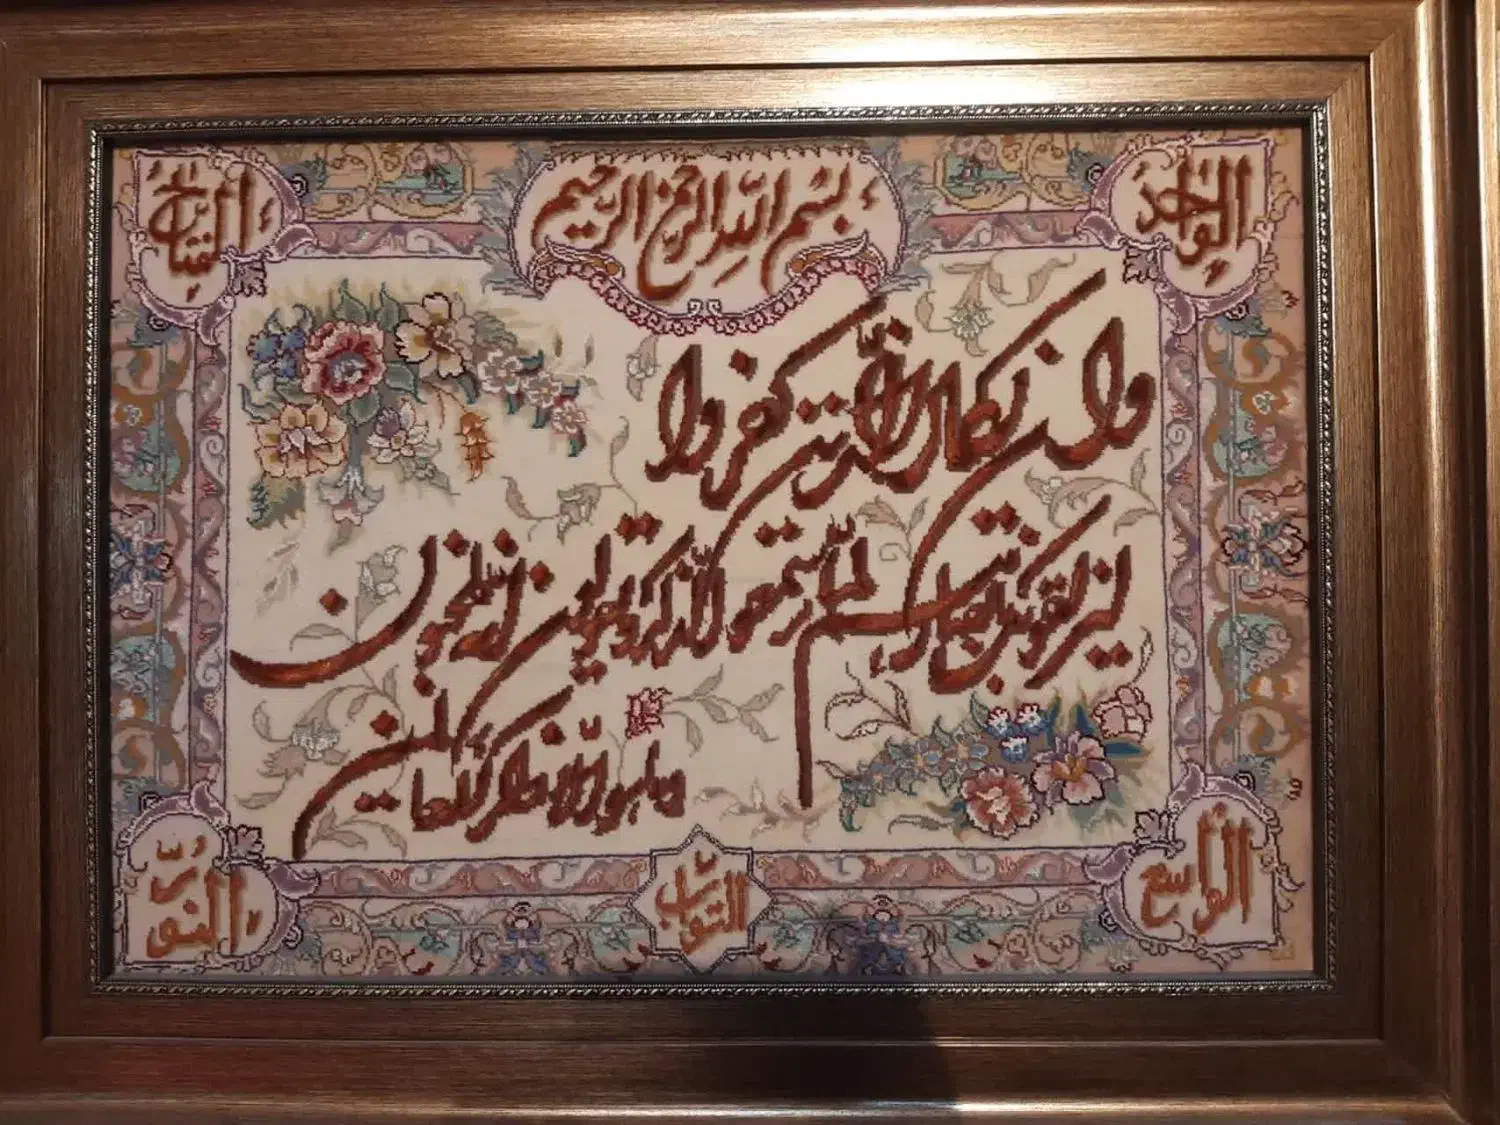 الواحد
بسم الله الرحمن الرحیم
الفتاح
وان یکاد الذین کفروا
لیزلقونک بابصارهم لما سمعوا الذکر و یقولون انه لمجنون
و ما هو الا ذکر للعالمین
الواسع
التواب
النور